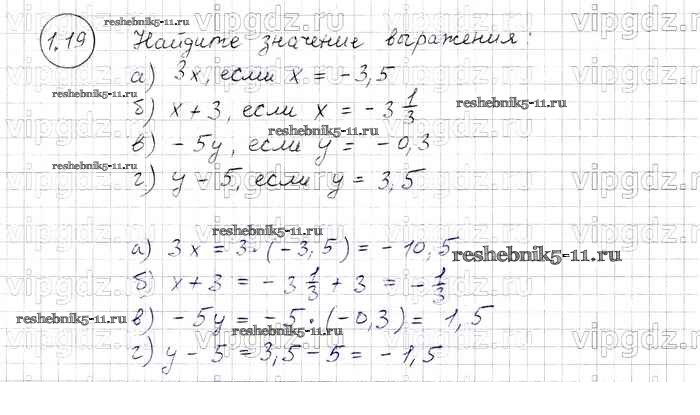 1.19 Найдите значение выражения:
а) 3x, если x = -3,5
б) x + 3, если x = -3 1/3
в) -5y, если y = -0,3
г) y - 5, если y = 3,5
а) 3x = 3·(-3,5) = -10,5
б) x+3 = -3 1/3 + 3 = -1/3
в) -5y = -5·(-0,3) = 1,5
г) y - 5 = 3,5 - 5 = -1,5
reshebnik5-11.ru
reshebnik5-11.ru
reshebnik5-11.ru
reshebnik5-11.ru
reshebnik5-11.ru
reshebnik5-11.ru
reshebnik5-11.ru
reshebnik5-11.ru
reshebnik5-11.ru
vipgdz.ru